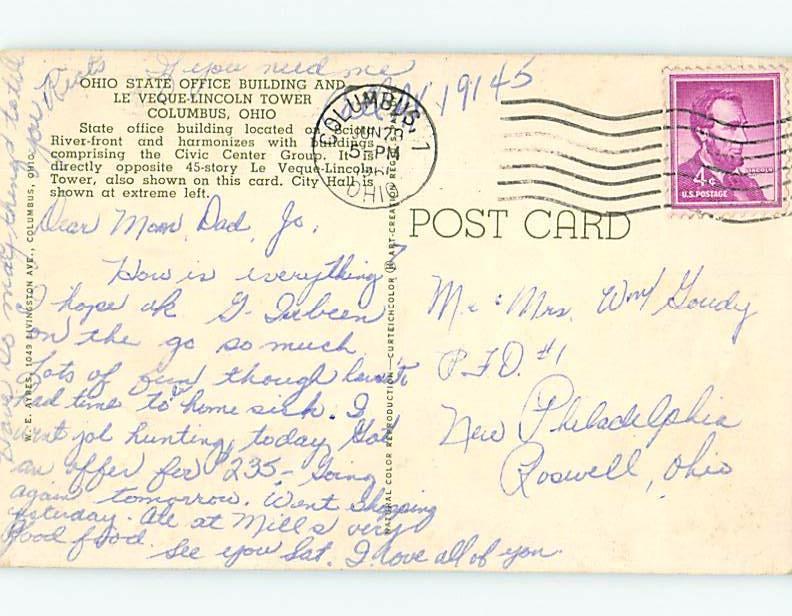 If you need me
call AX 19145
OHIO STATE OFFICE BUILDING AND
LE VEQUE-LINCOLN TOWER
COLUMBUS, OHIO
State office building located on Scioto
River-front and harmonizes with buildings
comprising the Civic Center Group. It is
directly opposite 45-story Le Veque-Lincoln
Tower, also shown on this card. City Hall is
shown at extreme left.
COLUMBUS, 1
JUN 23
5 PM
OHIO
LINCOLN
4¢
U.S. POSTAGE
POST CARD
Dear Mom, Dad, Jo,
How is everything?
I hope ok. G- I've been
on the go so much.
Lots of fun though haven't
had time to be home sick. I
went job hunting today. Got
an offer for 235- Going
again tomorrow. Went shopping
yesterday. Ate at Mills very
good food. See you Sat. I love all of you.
Have so many things to tell
you. Kists
Mr. & Mrs. Wm Goudy
R.F.D. #1
New Philadelphia
Roswell, Ohio
W. E. AYRES, 1049 LIVINGSTON AVE., COLUMBUS, OHIO
NATURAL COLOR REPRODUCTION—CURTEICHCOLOR ® ART-CREATION